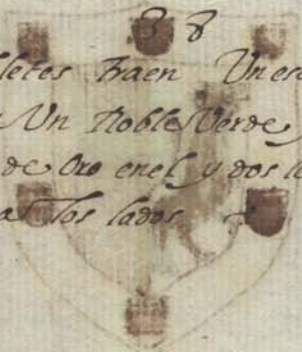 38
letes traen Un esc
Un Roble Verde
de Oro en el y dos l
a los lados